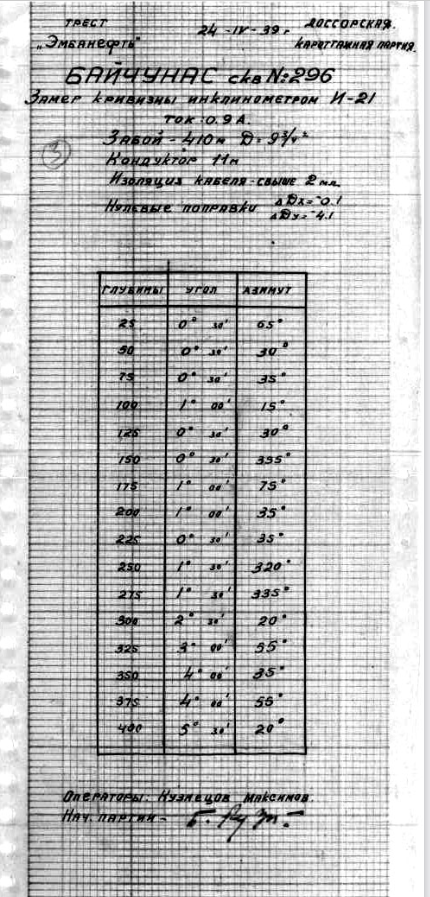 ТРЕСТ
„ЭМБАНЕФТЬ"
24-IV-39 г
ДОССОРСКАЯ.
КАРОТТАЖНАЯ ПАРТИЯ.
БАЙЧУНАС скв №:296
ЗАМЕР КРИВИЗНЫ ИНКЛИНОМЕТРОМ И-21
ТОК: 0.9 А.
ЗАБОЙ - 410 м D = 9 3/4"
КОНДУКТОР 11 м
ИЗОЛЯЦИЯ КАБЕЛЯ - СВЫШЕ 2 мг
НУЛЕВЫЕ ПОПРАВКИ ΔDx = -0.1
ΔDy = -4.1
ГЛУБИНЫ УГОЛ АЗИМУТ
25 0° 30' 65°
50 0° 30' 30°
75 0° 30' 35°
100 1° 00' 15°
125 0° 30' 30°
150 0° 30' 355°
175 1° 00' 75°
200 1° 00' 35°
225 0° 30' 35°
250 1° 30' 320°
275 1° 30' 335°
300 2° 30' 20°
325 3° 00' 55°
350 4° 00' 35°
375 4° 00' 55°
400 5° 30' 20°
ОПЕРАТОРЫ: КУЗНЕЦОВ МАКСИМОВ.
НАЧ. ПАРТИИ -